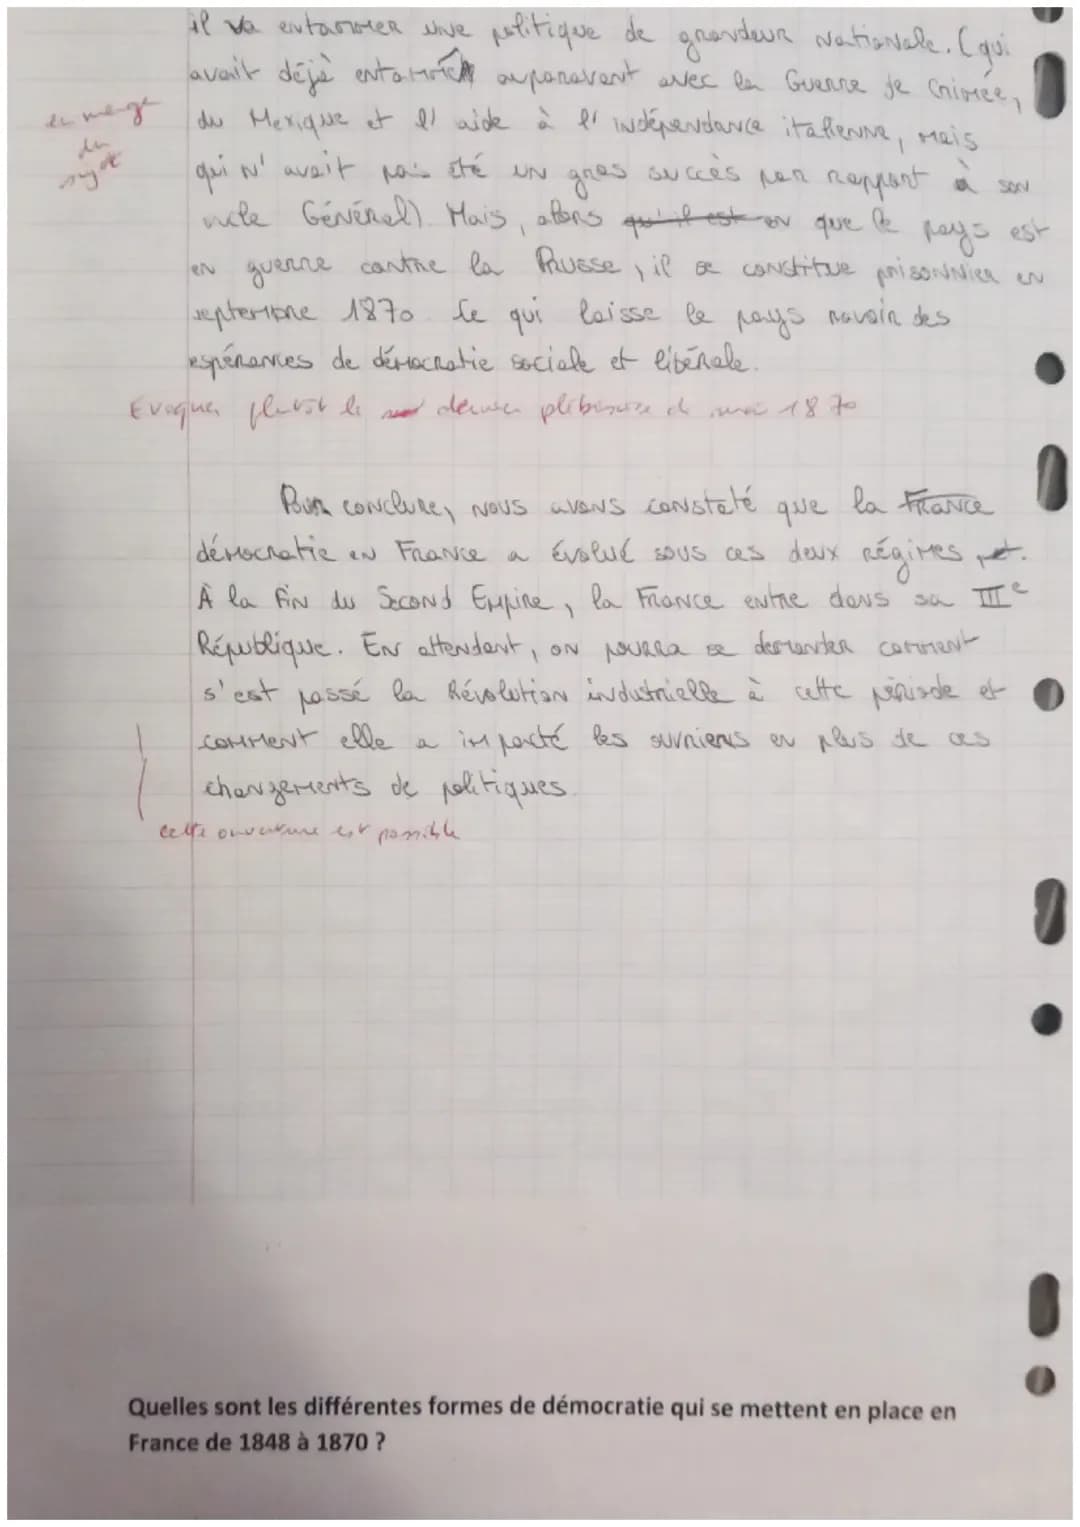 il va entammer une politique de grandeur Nationale. (qui
avait déjà entammée auparavant avec la Guerre de Crimée,
en marge
du
sujet
du Mexique et l'aide à l'indépendance italienne, mais
qui n'avait pas été un gros succès par rapport à son
oncle Général). Mais, alors qu'il est en que le pays est
en guerre contre la Prusse, il se constitue prisonnier en
septembre 1870. Ce qui laisse le pays ravoir des
espérances de démocratie sociale et libérale.
Evoquer plutôt le dernier plébiscite de mai 1870
Pour conclure, nous avons constaté que la France
démocratie en France a évolué sous ces deux régimes et.
À la fin du Second Empire, la France entre dans sa IIIe
République. En attendant, on pourra se demander comment
s'est passé la Révolution industrielle à cette période et
comment elle a impacté les ouvriers en plus de ces
changements de politiques.
cette ouverture est possible
Quelles sont les différentes formes de démocratie qui se mettent en place en
France de 1848 à 1870 ?